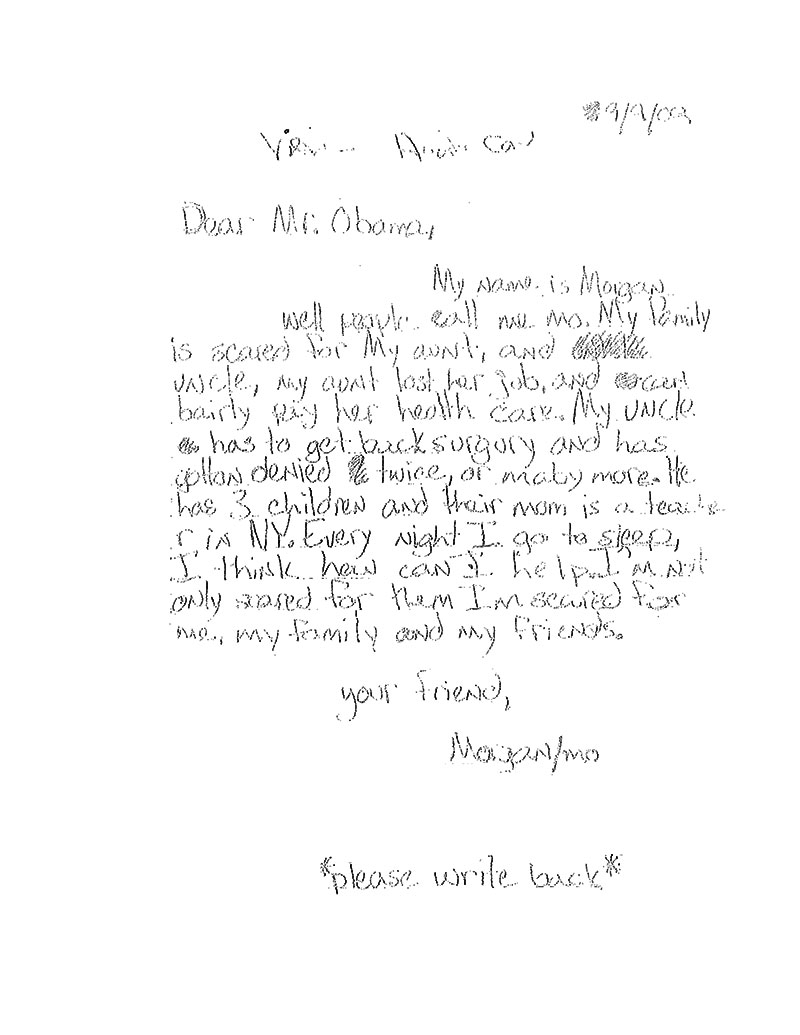 9/9/09
Health Care
Dear Mr. Obama,
My name is Morgan
well people call me mo. My family
is scared for My aunt, and
uncle, my aunt lost her job, and can
bairly pay her health care. My uncle
has to get back surgury and has
gotton denied twice, or maby more. He
has 3 children and their mom is a teache
r in NY. Every night I go to sleep,
I think how can I help. I'm not
only scared for them I'm scared for
me, my family and my friends.
your friend,
Morgan/mo
*please write back*